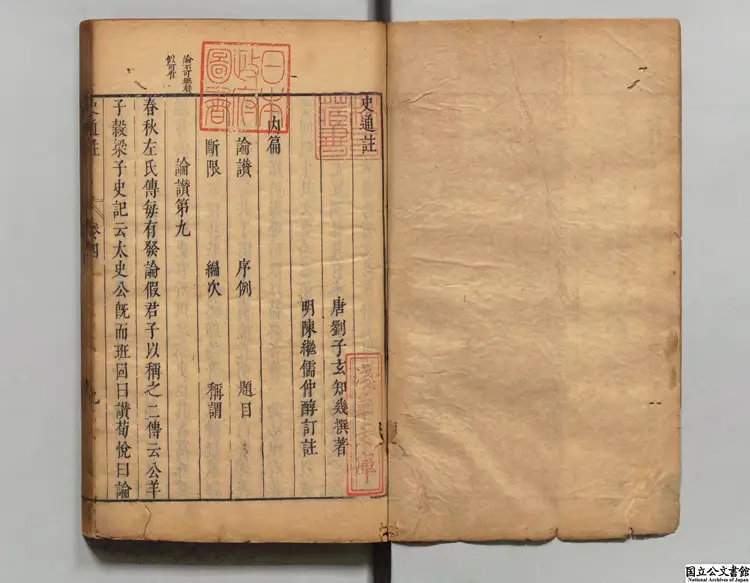 史通註
唐劉子玄知幾撰著
明陳繼儒仲醇訂註
內篇
論讚 序例 題目
斷限 編次 稱謂
論讚第九
春秋左氏傳每有發論假君子以稱之二傳云公羊
子穀梁子史記云太史公旣而班固曰讚荀悅曰論
史通註 卷四
日本政府圖書
淺草文庫
国立公文書館
National Archives of Japan